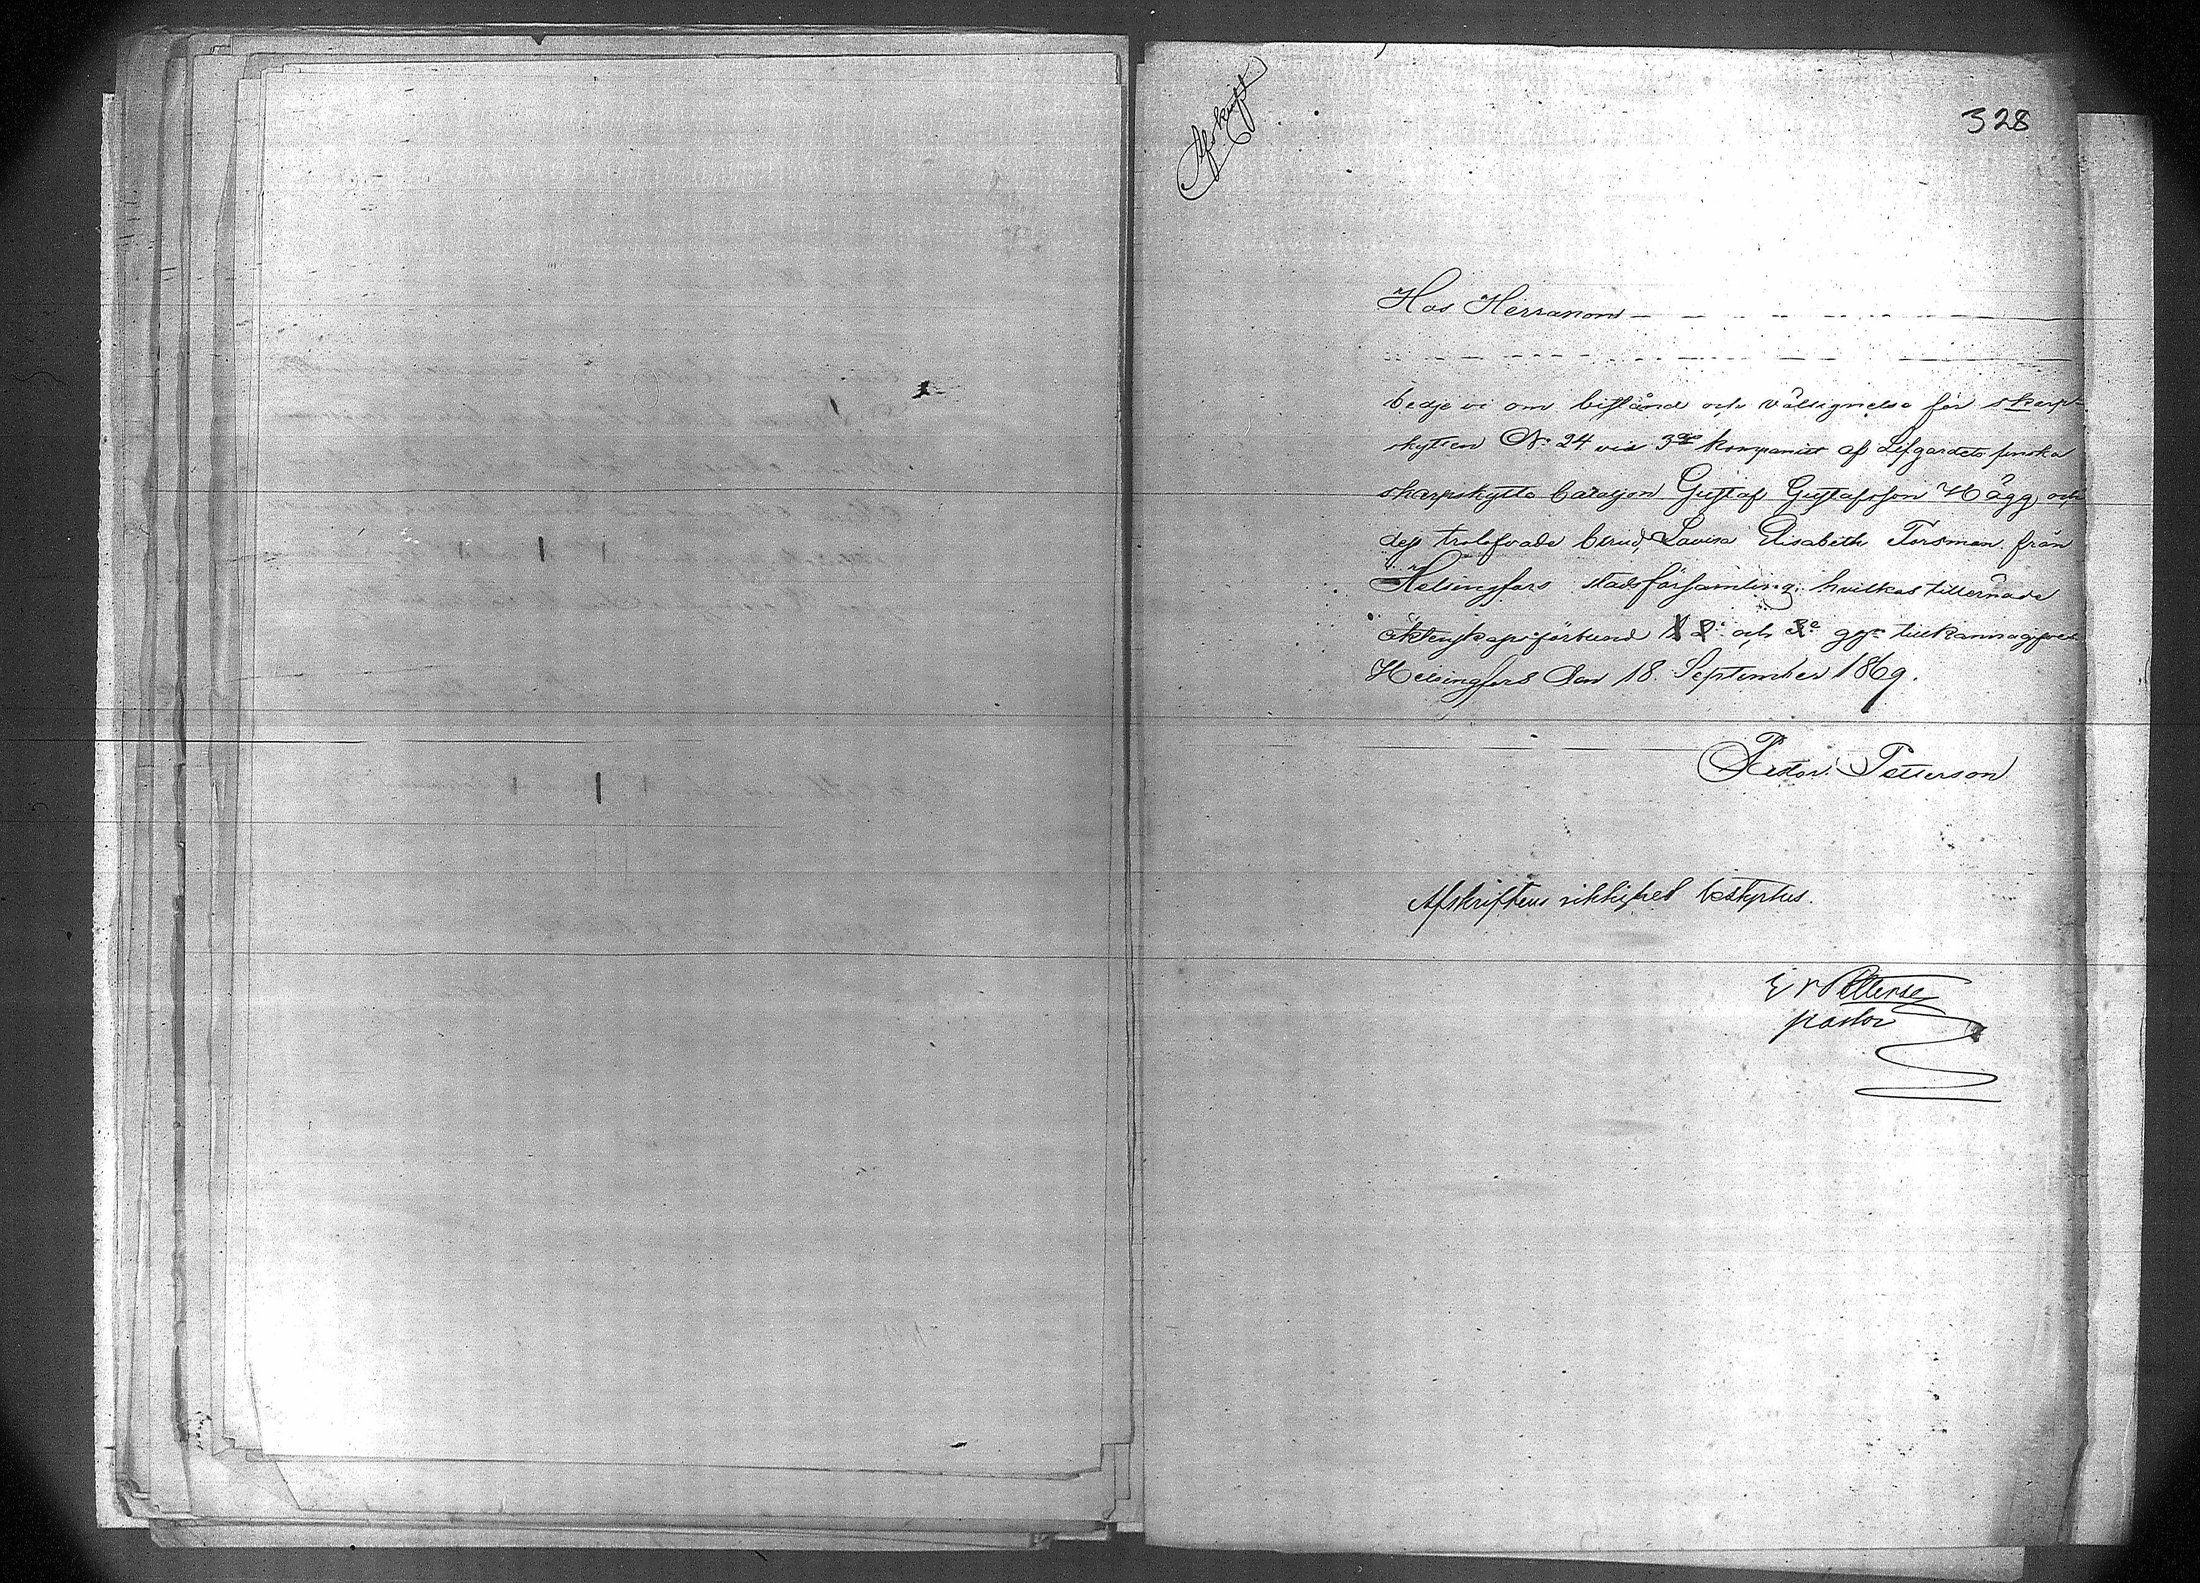 Afskrift
328
Hos Herranom
bedje vi om bistånd och välsignelse för skarp-
skytten No 24 vid 3dje kompaniet af Lifgardets finska
skarpskytte bataljon Gustaf Gustafsson Hägg och
dess trolofvade brud, Lovisa Elisabeth Forsman från
Helsingfors stadsförsamling, hvilkas tillernade
äktenskapsförbund 1 2e och 3e gge tillkännagifvet
Helsingfors den 18. September 1869.
Petterson
Afskriftens riktighet bestyrkes.
Petterson
pastor